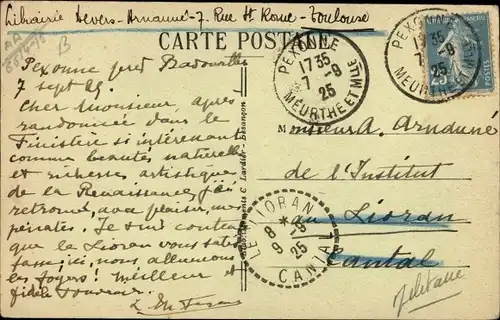 Librairie Severs-Arnauné - 7, Rue St Rome - Toulouse
CARTE POSTALE
Pexonne près Badonviller
7 sept 25.
Cher Monsieur, après
randonnée dans le
Finistère si intéressant
comme beautés naturelles
et richesses artistiques
de la Renaissance, j'ai
retrouvé, avec plaisir, mes
pénates. Je suis content
que le Lioran vous satis
fasse; ici, nous allumons
les foyers! Meilleur et
fidèle souvenir.
PEXONNE
17 35
7 - 9
25
MEURTHE ET MLLE
PEXONNE
17 35
7 - 9
25
MEURTHE ET MLLE
Monsieur A. Arnauné
de l'Institut
au Lioran
Cantal
LE LIORAN
8 *
9 - 9
25
CANTAL
C. Lardier - Besançon